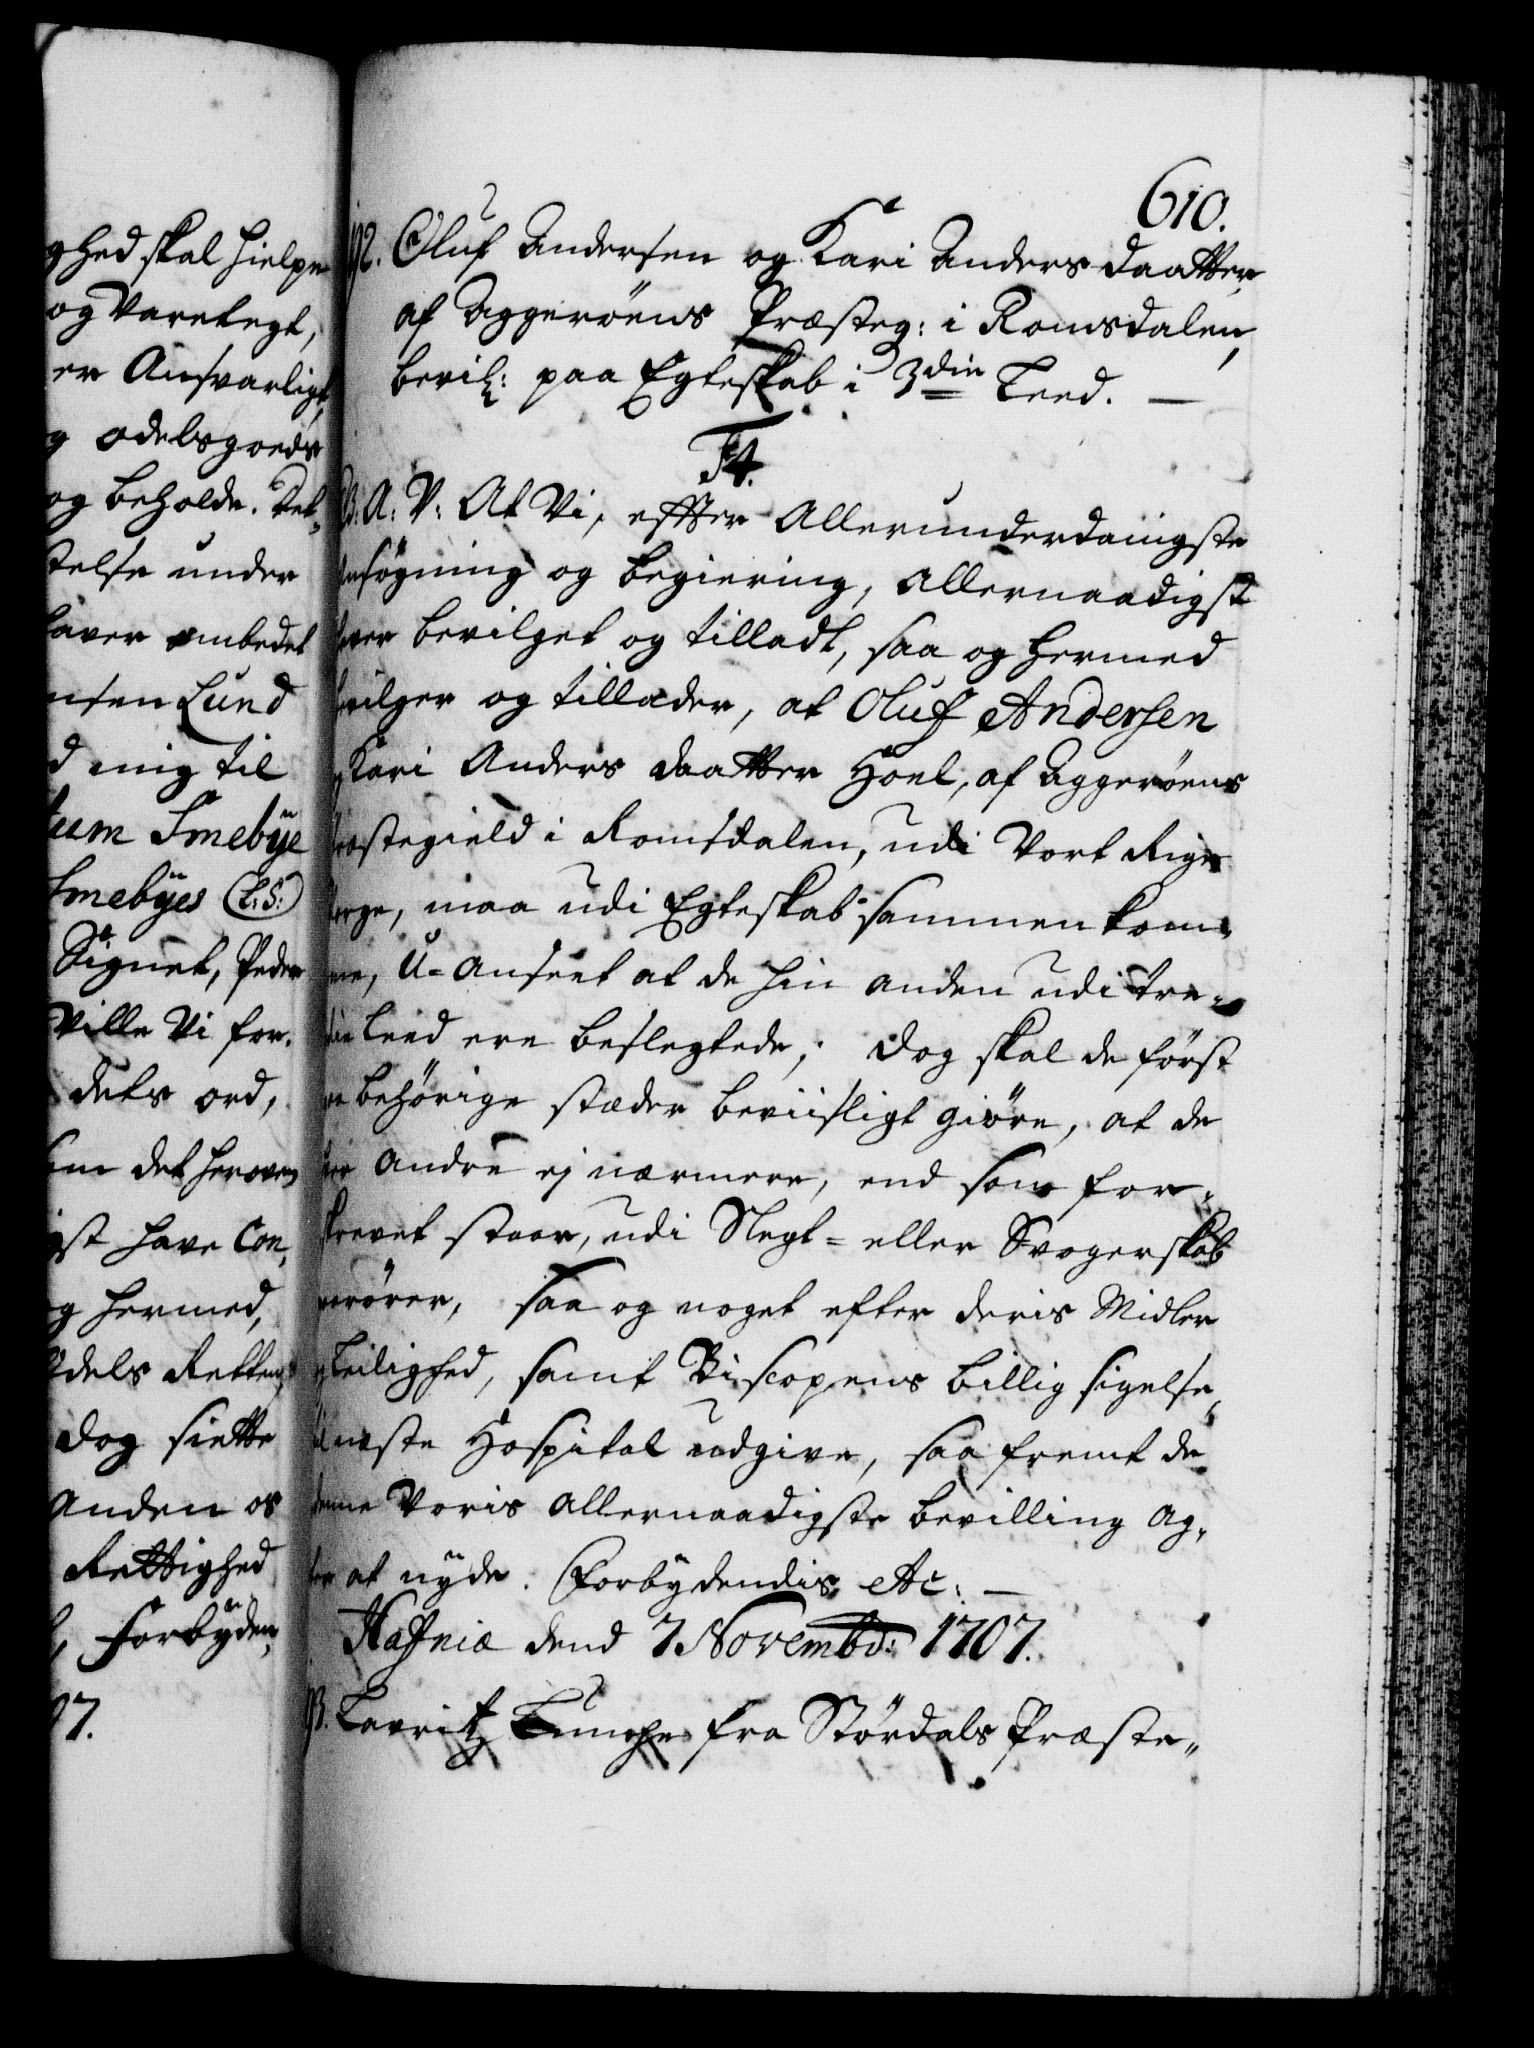 ghed skal hielpe
og Varetegt,
er Ansvarligt,
g odelsgoeds
og beholde. Det-
telse under
haver ombedet
nsen Lund
d mig til
lum Smebÿe
Smebÿes (L.S.)
Signet, Peder
Ville Vi for-
dets ord,
det heroven
st have Con-
g hermed,
Odels Retten
dog siette
Anden os
Rettighed
, Forbÿden,
07.
610.
192. Oluf Andersen og Kari Anders daatter
af Aggerøens Præsteg: i Romsdalen,
bevil: paa Egteskab i 3die Leed. —
F4.
G: A: V: At Vi, effter Allerunderdanigste
Ansøgning og begiering, allernaadigst
haver bevilget og tilladt, saa og hermed
bevilger og tillader, at Oluf Andersen
og Kari Anders daatter Hoel, af Aggerøens
Præstegield i Romsdalen, udi Vort Rige
Norge, maa udi Egteskab sammenkom-
me, U-anseet at de hin anden udi tre-
die Leed ere beslegtede; dog skal de først
behørige stæder beviisligt giøre, at de
hver andre ej nærmere, end som for-
skrevet staar, udi Slegt- eller Svogerskab
rører, saa og noget efter deris Midler
og Leilighed, samt Biscopens billig sigelse,
til næste Hospital udgive, saa fremt de
denne Voris allernaadigste bevilling ag-
ter at nyde. Forbydendis Etc: —
Hafniæ dend 7 Novembr: 1707.
Lavritz fra Størdals Præste-